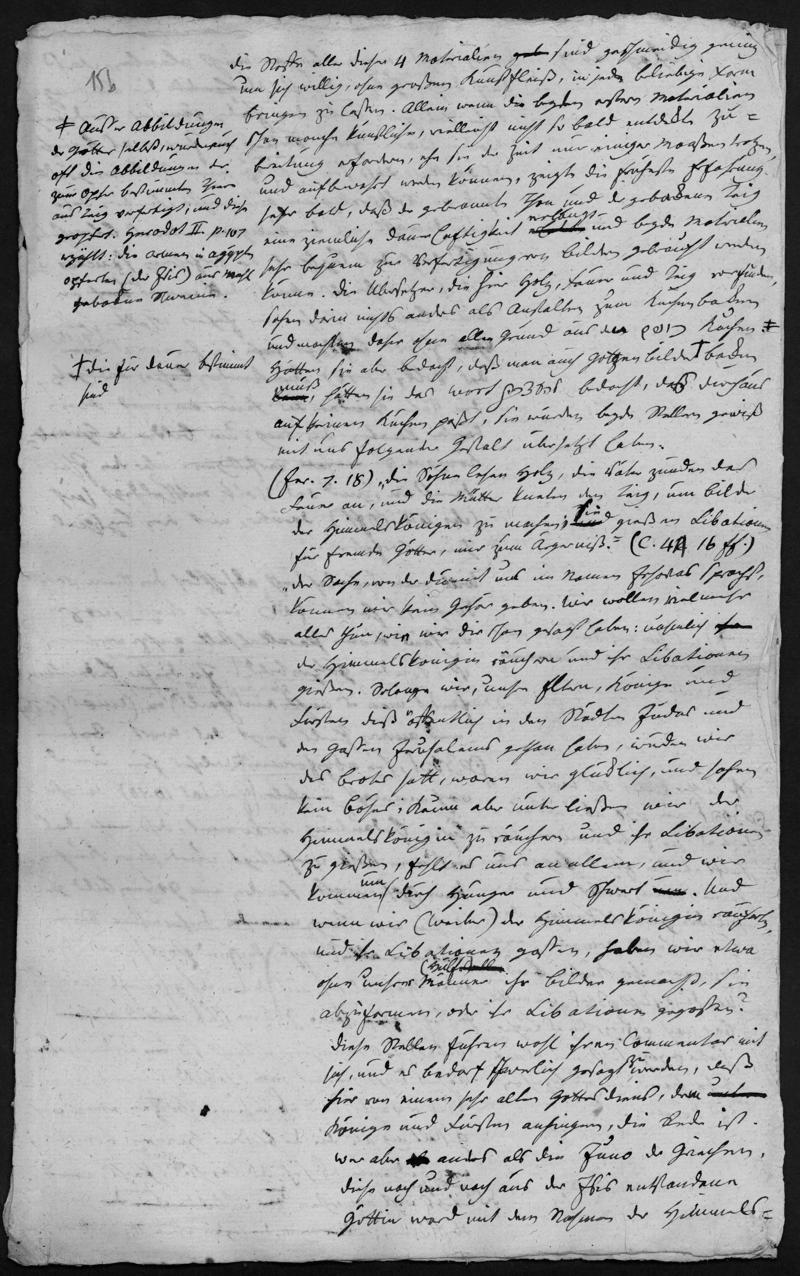 156
die Stoffe aller dieser 4 Materialien sind geschmeidig genug
um sich willig, ohne großen Kunstfleiß, in jede beliebige Form
bringen zu lassen. Allein wenn die beyden erstern Materialien
schon manche künstliche, vielleicht nicht so bald entdeckte Zu=
bereitung erfordern, ehe sie der Zeit nur einiger Maaßen trotzen,
und aufbewahrt werden können, zeigte die früheste Erfahrung
sehr bald, daß der gebrannte Thon und der gebackene Teig
eine ziemliche Dauerhaftigkeit erlangt und beyde Materialien
sehr bequem zur Verfertigung von Bildern gebraucht werden
können. Die Übersetzer, die hier Holz, Feuer und Teig vorfinden,
sahen darin nichts anders als Anstalten zum Kuchenbacken
und machten daher ohne allen Grund aus den כונים Kuchen. ‡
Hätten sie aber bedacht, daß man auch Götzenbilder † backen
muß, hätten sie das Wort bedacht, daß durchaus
auf keinen Kuchen paßt, sie würden beyde Stellen gewiß
mit uns folgender Gestalt übersetzt haben.
(Jer. 7. 18) „die Söhne lesen Holz, die Väter zünden das
Feuer an, und die Mütter kneten den Teig, um Bilder
der Himmelsköniginn zu machen; sie gießen Libationen
für fremde Götter, mir zum Ärgerniß." (C. 44 16 ff.)
„der Sache, von der du mit uns im Namen Jehovas sprachst,
können wir kein Gehör geben. Wir wollen vielmehr
alles thun, wie wir dir schon gesagt haben: nehmlich
der Himmelskönigin räuchern und ihr Libationen
gießen. Solange wir, unsre Eltern, Könige und
Fürsten dieß öffentlich in den Städten Judas und
den Gassen Jerusalems gethan haben, wurden wir
des Brotes satt, waren wir glücklich, und sahen
kein Böses; Kaum aber unterließen wir der
Himmelskönigin zu räuchern und ihr Libationen
zu gießen, fehlt es uns an allem, und wir
kommen um durch Hunger und Schwert. Und
wenn wir (Weiber) der Himmelskönigin räucherten,
und ihr Libationen gossen, haben wir etwa
ohne unsere Männer ihr Bilder gemacht, sie
abzuformen, oder ihr Libationen gegossen?
Diese Stellen führen wohl ihren Commentar mit
sich, und es bedarf schwerlich gesagt zu werden, daß
hier von einem sehr alten Gottesdienst, dem
Könige und Fürsten anhingen, die Rede ist.
Wer aber anders als die Juno der Griechen,
diese nach und nach aus der Isis entstandene
Göttin ward mit dem Nahmen der Himmels=
‡ Ausser Abbildungen
der Götter selbst, wurden auch
oft die Abbildungen der
zum Opfer bestimmten Thiere
aus Teig verfertigt, und diese
geopfert. Herodot II. p. 107
erzählt: die Armen in Ägypten
opferten (der Isis) aus Mehl
gebackene Schweine.
† die für Dauer bestimmt
sind